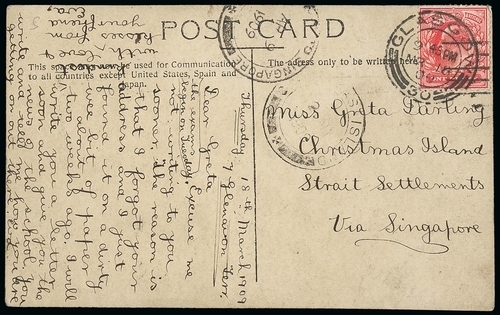 POST CARD
This space may be used for Communication
to all countries except United States, Spain and
Japan.
The adress only to be written here.
GLASGOW
SINGAPORE
Miss Greta Darling
Christmas Island
Strait Settlements
Via Singapore
Thursday 18th March 1909
7 Glencairn Terr.
Dear Greta
Excuse me
writing to you
sooner. The reason is
that I forgot your
address and I just
found it on a dirty
wee bit of paper
two weeks ago. I will
write you a letter
and give you the
news
the school. You
write and tell me how you are
getting on out there.
with love &
kisses from
your friend